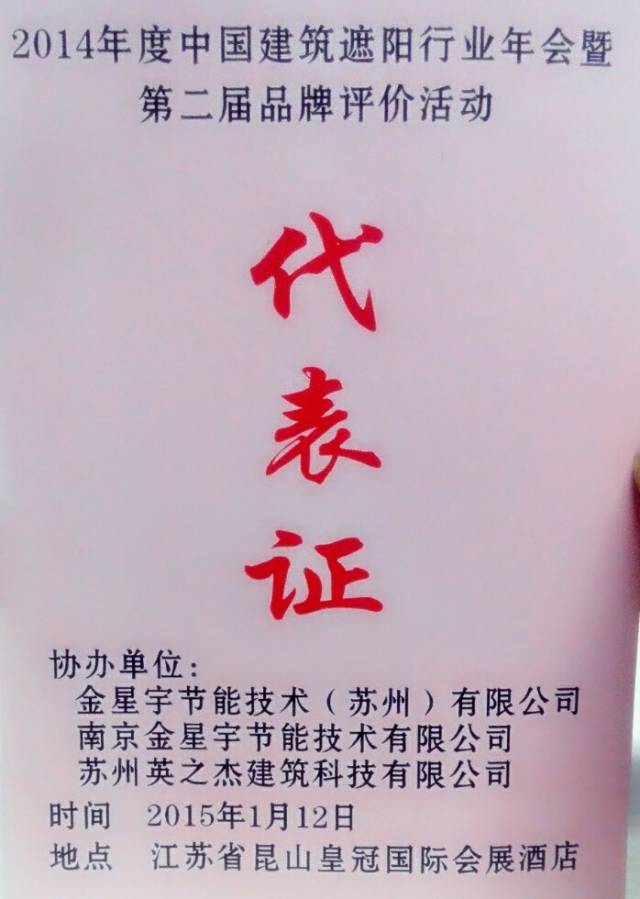 2014年度中国建筑遮阳行业年会暨
第二届品牌评价活动
代
表
证
协办单位:
金星宇节能技术（苏州）有限公司
南京金星宇节能技术有限公司
苏州英之杰建筑科技有限公司
时间 2015年1月12日
地点 江苏省昆山皇冠国际会展酒店